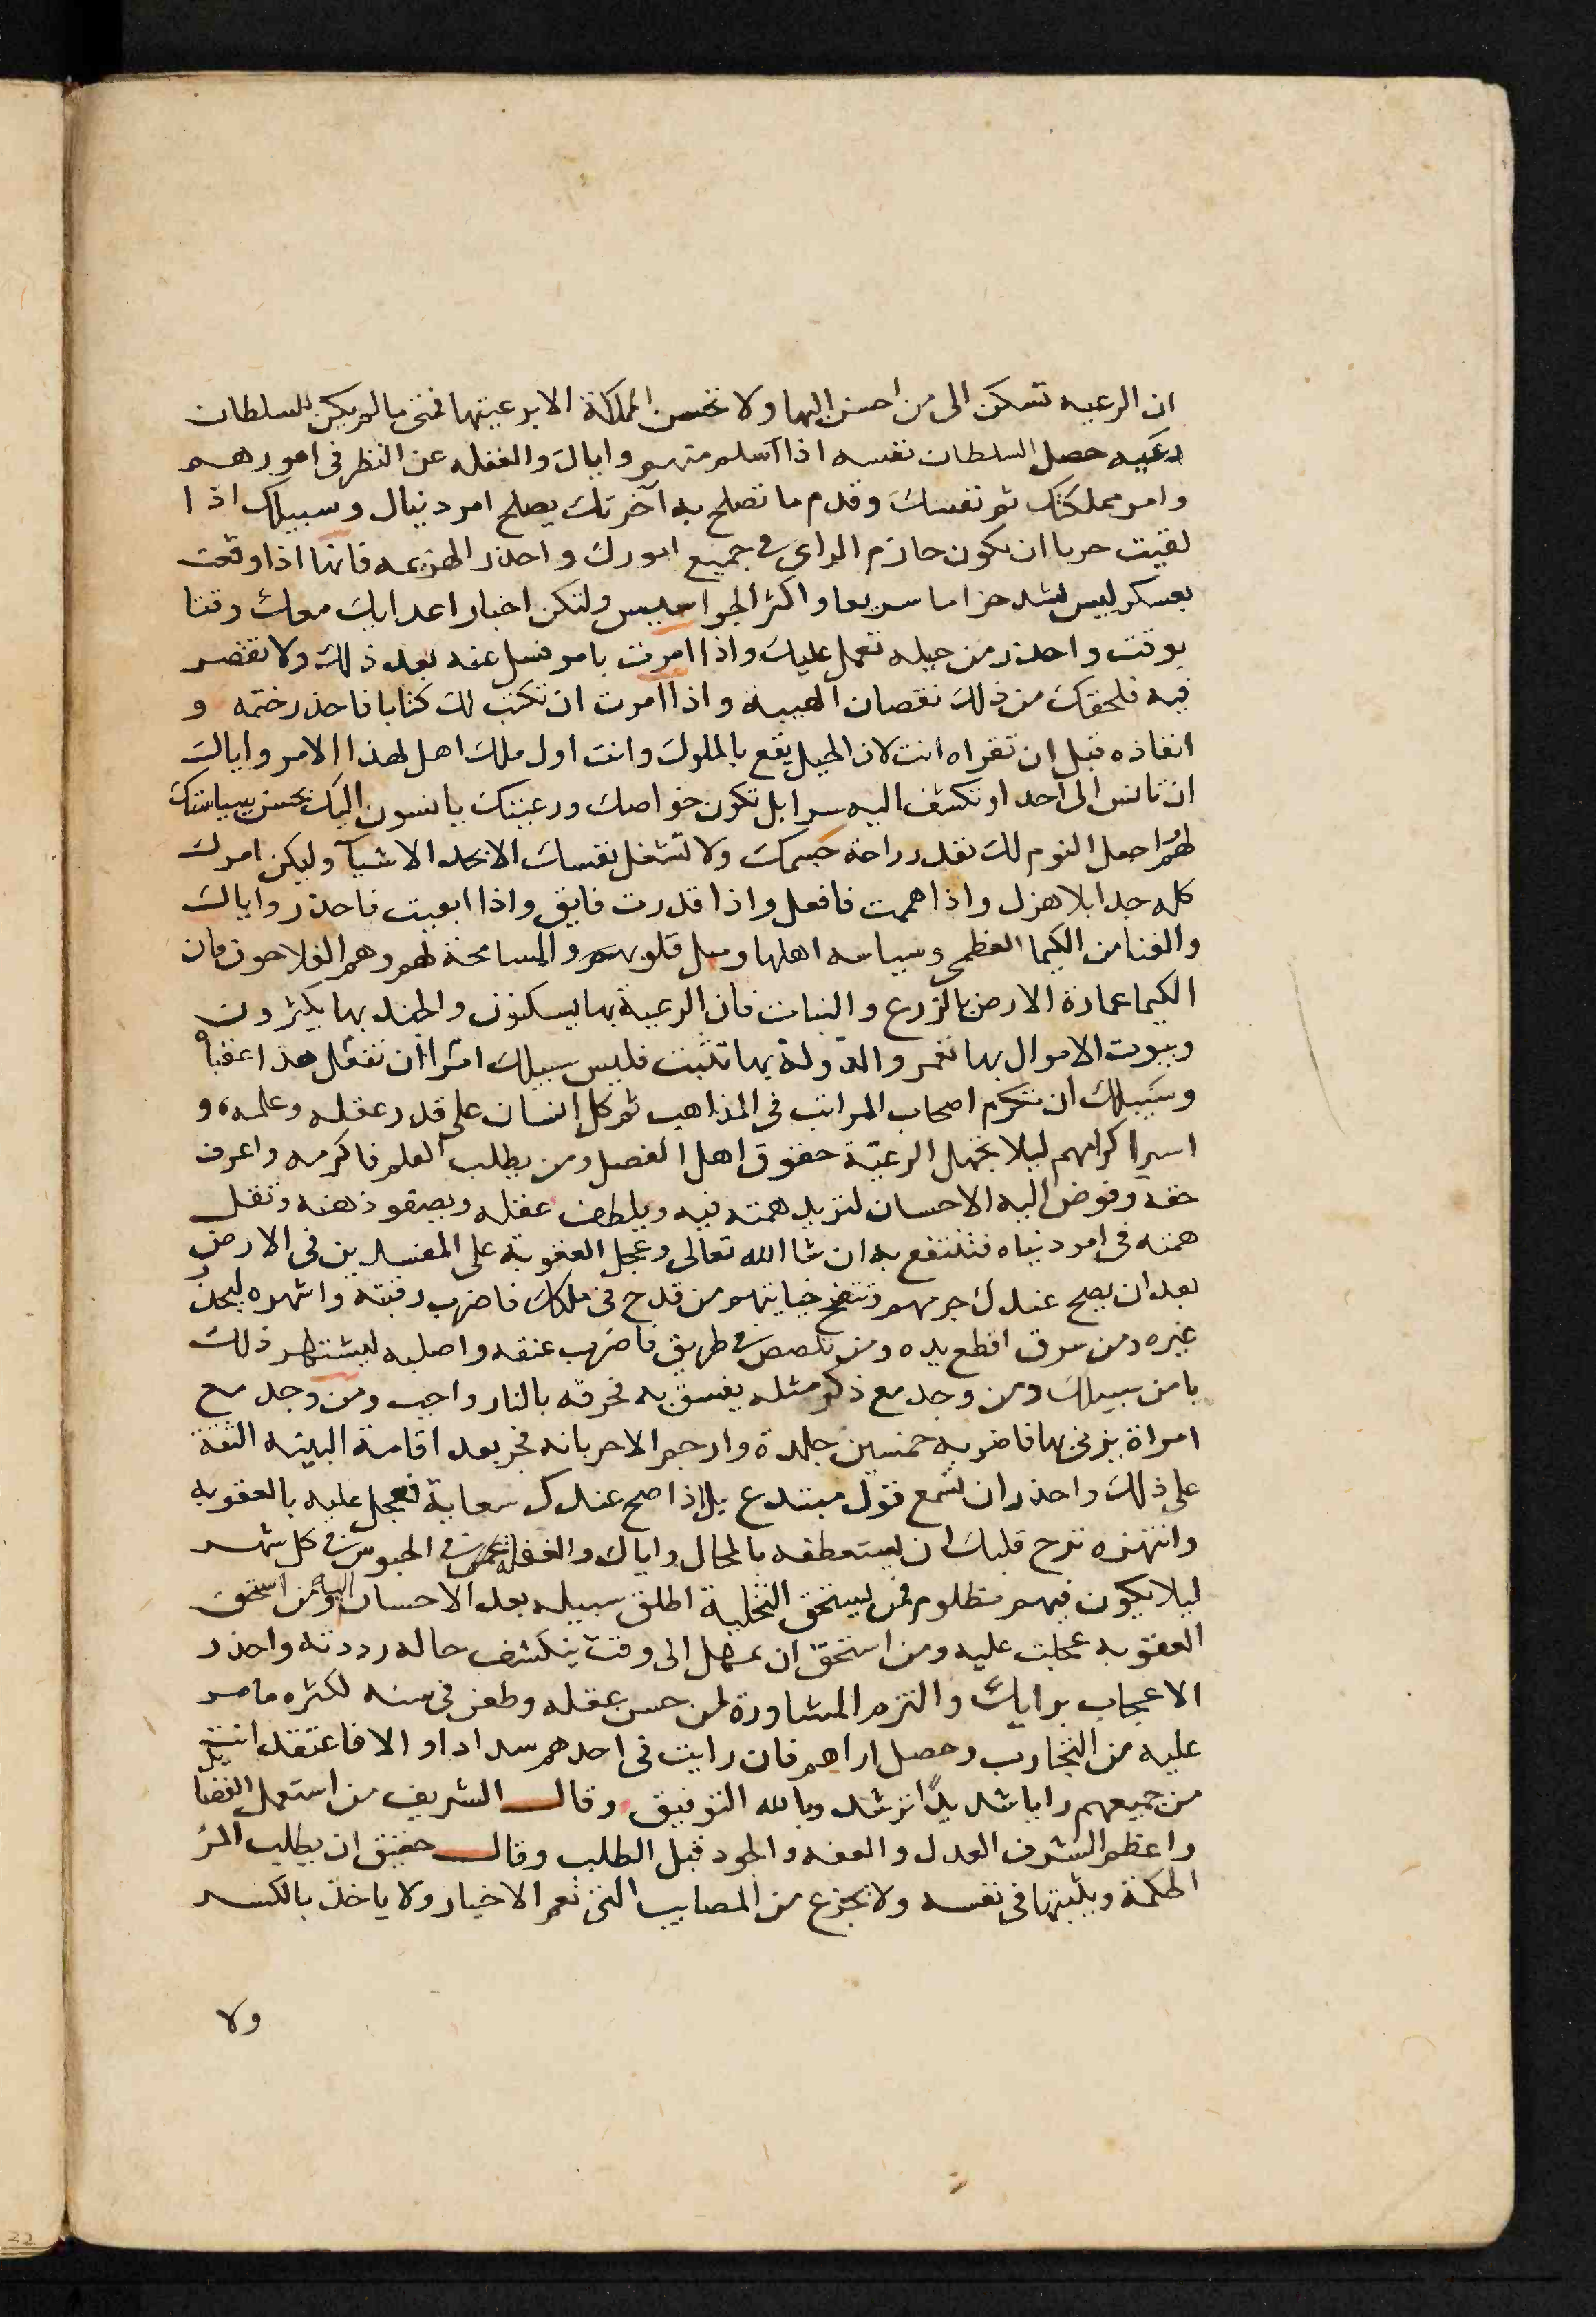 ان الرعيه تسكن الى من احسن اليها ولا تحسن المملكة الا برعيتها فمتى ما لم يكن للسلطان
رعيه حصل السلطان نفسه اذا اسلم منهم واياك والغفله عن النظر فى امورهم
وامر مملكتك ثم نفسك وقدم ما تصلح به آخرتك يصلح امر دنياك وسبيلك اذا
لقيت حربا ان تكون حازم الراى فى جميع امورك واحذر الهزيمه فانها اذا وقعت
بعسكر ليس لشد حزاما سريعا واكثر الجواسيس ولتكن اخبار اعدايك معك وقتا
بوقت واحذر من حيله تعمل عليك واذا امرت بامر فسل عنه بعد ذلك ولا تقصر
فيه فلحقك من ذلك نقصان الهيبة واذا امرت ان تكتب لك كتابا فاحذر ختمه و
انفاذه قبل ان تقراه انت لان الحيل يقع بالملوك وانت اول ملك اهل لهذا الامر واياك
ان تانس الى احد او تكشف اليه سرا بل تكون خواصك ورعيتك يانسون اليك بحسن سياستك
لهم اجعل النوم لك بقدر راحة جسمك ولا تشغل نفسك الا بجد الاشيآ وليكن امرك
كله جدا بلا هزل واذا هممت فافعل واذا قدرت فابق واذا ابقيت فاحذر واياك
والغنا من الكيما العظمى وسياسه اهلها وميل قلوبهم والمسامحة لهم وهم الفلاحون فان
الكيما عمارة الارض بالزرع والنبات فان الرعية بها يسكنون والجند بها يكثرون
وبيوت الاموال بها تعمر والدولة بها تثبت فليس سبيلك امرا ان تغفل هذا
وسبيلك ان تكرم اصحاب المراتب فى المذاهب ثم كل انسان على قدر عقله وعلمه، و
اسير اكرامهم ليلا تجهل الرعيّة حقوق اهل الفضل ومن يطلب العلم فاكرمه واعرف
حقه وفوض اليه الاحسان لتزيد همته فيه ويلطف عقله ويصفو ذهنه وتقل
همته فى امر دنياه فتنتفع به ان شا الله تعالى وعجل العقوبة على المفسدين فى الارض
بعد ان يصح عندك جرمهم وتتضح خيانتهم من قدح فى ملكك فاضرب رقبته واشهره ليحذر
غيره ومن سرق اقطع يده ومن تلصص فى طريق فاضرب عنقه واصلبه ليشتهر ذلك
يامن سبيلك ومن وجد مع ذكر مثله يفسق به فحرقه بالنار واجب ومن وجد مع
امراة يزنى بها فاضربه خمسين جلدة وارجم الاحر بانه فجر بعد اقامة البينه الثقة
على ذلك واحذر ان تسمع قول مبتدع بل اذا صح عندك سعاية فعجل عليه بالعقوبه
وانتهزه ترح قلبك ان يستعطفه بالمحال واياك والغفله عمن فى الحبوس فى كل شهر
ليلا يكون فيهم مظلوم فمن يستحق التخلية اطلق سبيله بعد الاحسان اليه ومن استحق
العقوبه عجلت عليه ومن استحق ان يمهل الى وقت ينكشف حاله رددته واحذر
الاعجاب برايك والتزم المشاورة لمن حسن عقله وطعن فى سنه لكثره ما مر
عليه من التجارب وحصل اراهم فان رايت فى احدهم سدادا والا فاعتقد انت
من جميعهم رايا شديدًا ترشد وبالله التوفيق وقال الشريف من استعمل الفضايل
واعظم الشرف العدل والعفه والجود قبل الطلب وقال حقيق ان يطلب المرٔ
الحكمة ويثبتها فى نفسه ولا تجزع من المصايب التى تعم الاخيار ولا ياخذ بالكسر
ولا